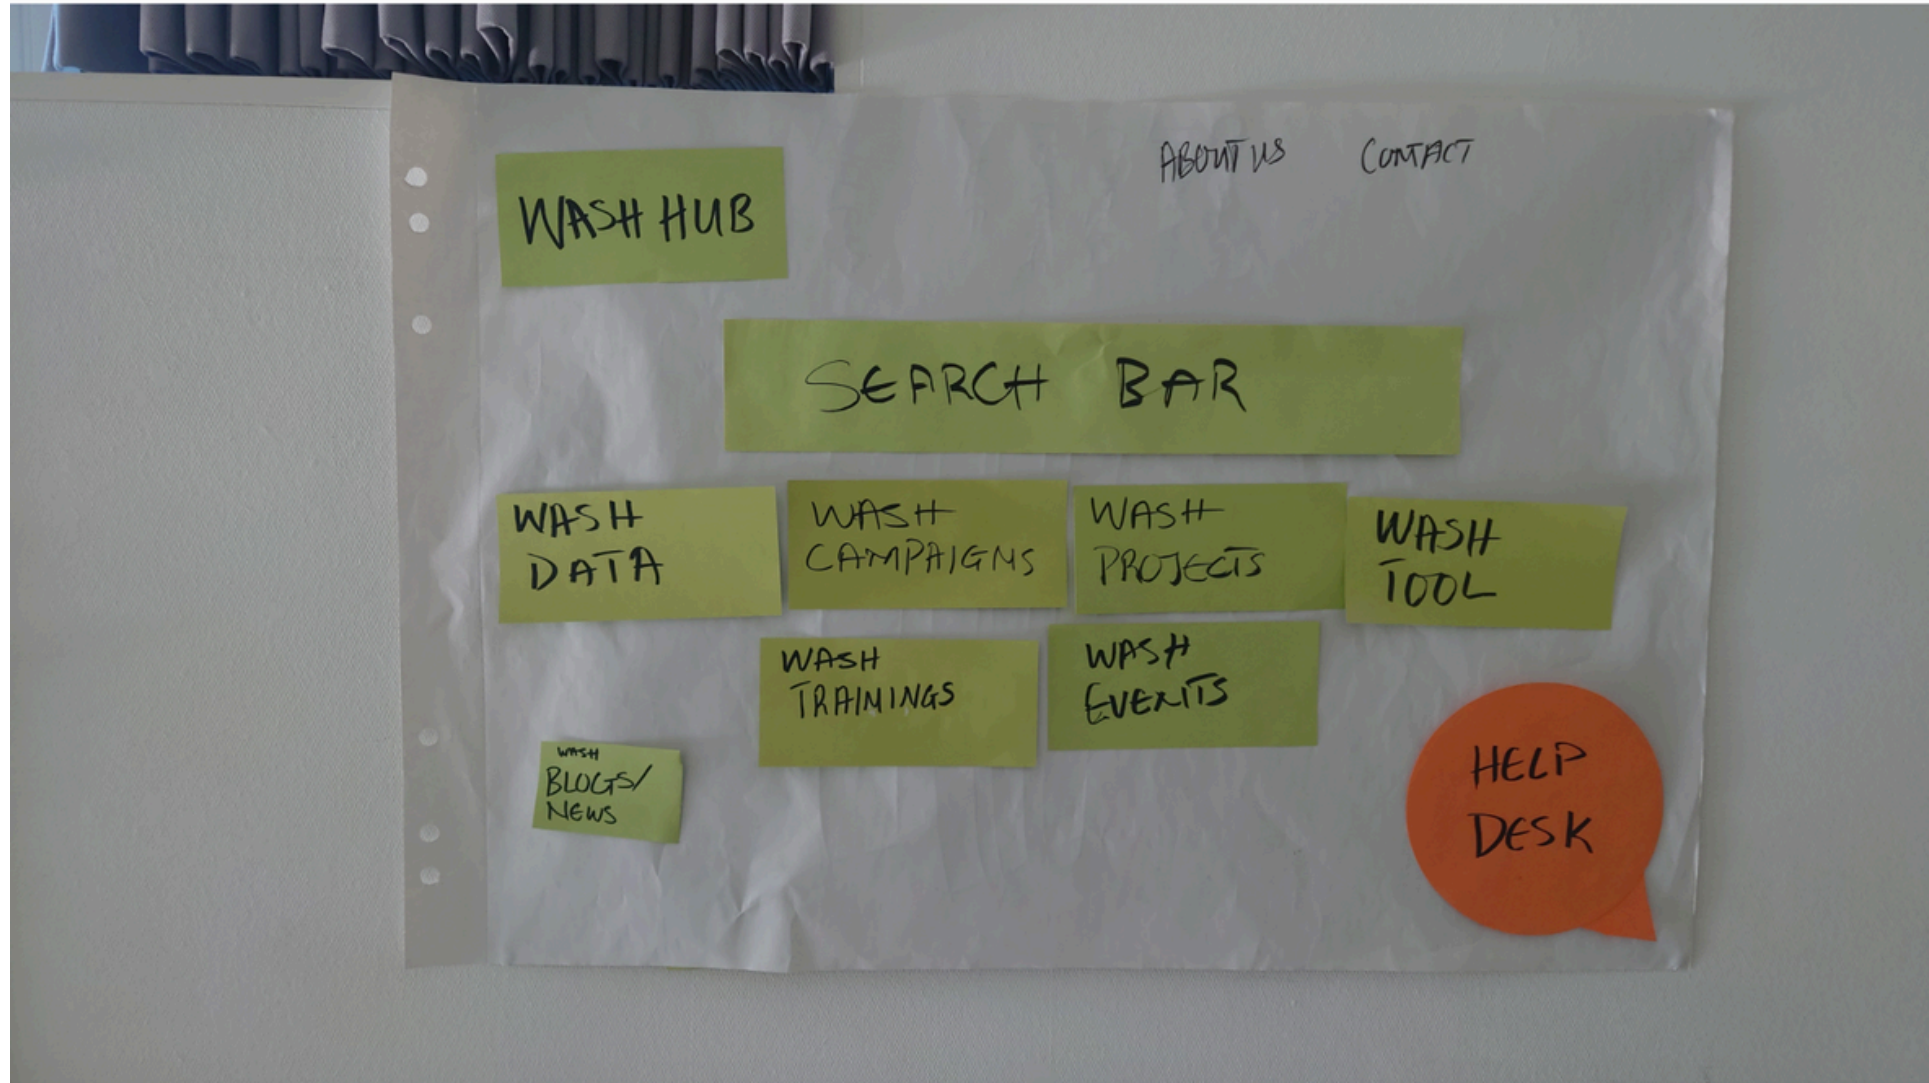 ABOUT US CONTACT
WASH HUB
SEARCH BAR
WASH
DATA
WASH
CAMPAIGNS
WASH
PROJECTS
WASH
TOOL
WASH
TRAININGS
WASH
EVENTS
WASH
BLOGS/
NEWS
HELP
DESK